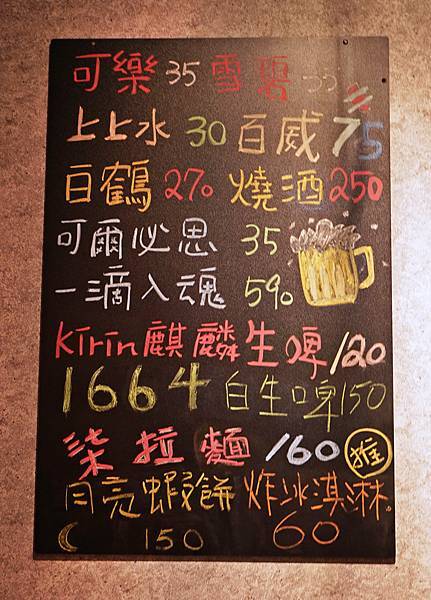 可樂 35 雪碧 35
上上水 30 百威 75
白鶴 270 燒酒 250
可爾必思 35
一滴入魂 590
Kirin麒麟生啤 120
1664 白生啤 150
柒拉麵 160 推
月亮蝦餅 炸冰淇淋。
150 60